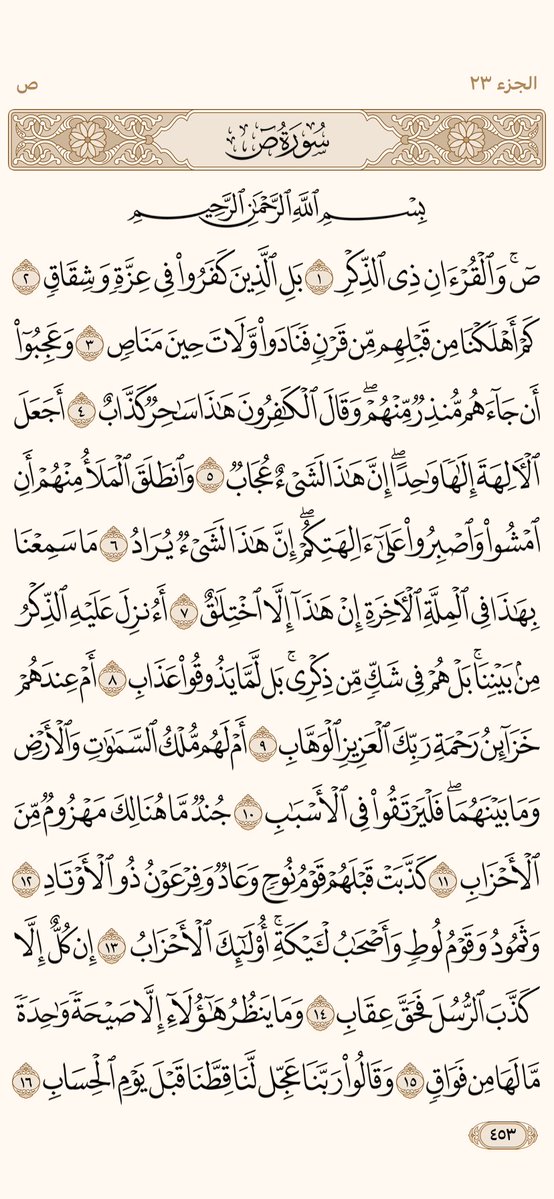 الجزء ٢٣
ص
سُورَةُ صٓ
بِسْمِ ٱللَّهِ ٱلرَّحْمَٰنِ ٱلرَّحِيمِ
صٓۚ وَٱلْقُرْءَانِ ذِى ٱلذِّكْرِ ١ بَلِ ٱلَّذِينَ كَفَرُوا۟ فِى عِزَّةٍۢ وَشِقَاقٍۢ ٢
كَمْ أَهْلَكْنَا مِن قَبْلِهِم مِّن قَرْنٍۢ فَنَادَوا۟ وَّلَاتَ حِينَ مَنَاصٍۢ ٣ وَعَجِبُوٓا۟
أَن جَآءَهُم مُّنذِرٌۭ مِّنْهُمْۖ وَقَالَ ٱلْكَٰفِرُونَ هَٰذَا سَٰحِرٌۭ كَذَّابٌ ٤ أَجَعَلَ
ٱلْءَالِهَةَ إِلَٰهًۭا وَٰحِدًاۖ إِنَّ هَٰذَا لَشَىْءٌ عُجَابٌۭ ٥ وَٱنطَلَقَ ٱلْمَلَأُ مِنْهُمْ أَنِ
ٱمْشُوا۟ وَٱصْبِرُوا۟ عَلَىٰٓ ءَالِهَتِكُمْۖ إِنَّ هَٰذَا لَشَىْءٌۭ يُرَادُ ٦ مَا سَمِعْنَا
بِهَٰذَا فِى ٱلْمِلَّةِ ٱلْءَاخِرَةِ إِنْ هَٰذَآ إِلَّا ٱخْتِلَٰقٌ ٧ أَءُنزِلَ عَلَيْهِ ٱلذِّكْرُ
مِنۢ بَيْنِنَاۚ بَلْ هُمْ فِى شَكٍّۢ مِّن ذِكْرِىۚ بَل لَّمَّا يَذُوقُوا۟ عَذَابِ ٨ أَمْ عِندَهُمْ
خَزَآئِنُ رَحْمَةِ رَبِّكَ ٱلْعَزِيزِ ٱلْوَهَّابِ ٩ أَمْ لَهُم مُّلْكُ ٱلسَّمَٰوَٰتِ وَٱلْأَرْضِ
وَمَا بَيْنَهُمَاۖ فَلْيَرْتَقُوا۟ فِى ٱلْأَسْبَٰبِ ١٠ جُندٌۭ مَّا هُنَالِكَ مَهْزُومٌۭ مِّنَ
ٱلْأَحْزَابِ ١١ كَذَّبَتْ قَبْلَهُمْ قَوْمُ نُوحٍۢ وَعَادٌۭ وَفِرْعَوْنُ ذُو ٱلْأَوْتَادِ ١٢
وَثَمُودُ وَقَوْمُ لُوطٍۢ وَأَصْحَٰبُ لْـَٔيْكَةِۚ أُو۟لَٰٓئِكَ ٱلْأَحْزَابُ ١٣ إِن كُلٌّ إِلَّا
كَذَّبَ ٱلرُّسُلَ فَحَقَّ عِقَابِ ١٤ وَمَا يَنظُرُ هَٰٓؤُلَآءِ إِلَّا صَيْحَةًۭ وَٰحِدَةًۭ
مَّا لَهَا مِن فَوَاقٍۢ ١٥ وَقَالُوا۟ رَبَّنَا عَجِّل لَّنَا قِطَّنَا قَبْلَ يَوْمِ ٱلْحِسَابِ ١٦
٤٥٣